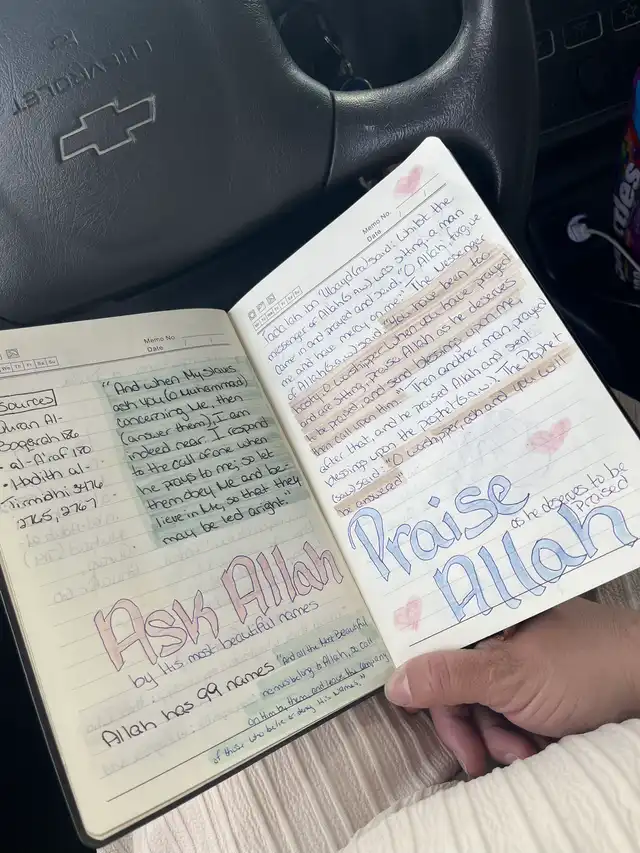 CHEVROLET
Memo No.
Date
Sources
Quran Al-
Baqarah 186
• al-A'raf 180
• Hadith al-
Tirmidhi 3476
2765, 2767
"And when My slaves
ask you (O Muhammad)
concerning Me, then
(answer them), I am
indeed near. I respond
to the call of one when
he prays to me; so let
them obey Me and be-
lieve in Me, so that they
may be led aright."
Ask Allah
by His most beautiful names
Allah has 99 names
"And all the Most Beautiful
names belong to Allah, so call
on Him by them and leave the company
of those who belie or deny His Names."
Memo No.
Date
said: Whilst the
messenger of Allah (s.a.w) was sitting, a man
came in and prayed and said: "O Allah, forgive
me and have mercy on me." The Messenger
of Allah (s.a.w) said: "You have been too
hasty, O worshipper. When you have prayed
and are sitting, praise Allah as he deserves
to be praised, and send blessings upon me,
then call upon Him." Then another man prayed
after that, and he praised Allah and sent
blessings upon the prophet (s.a.w). The Prophet
(saw) said: "O worshipper, ask and you will
be answered"
Praise
as he deserves to be
Praised
Allah